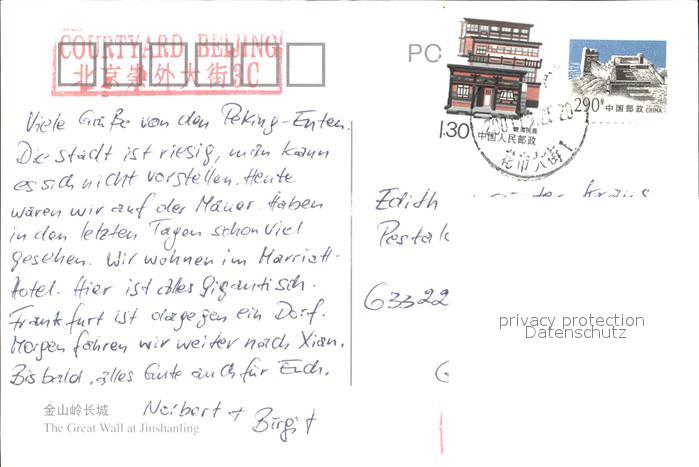 COURTYARD BEIJING
北京崇外大街3C
Viele Grüße von den Peking-Enten.
Die Stadt ist riesig, man kann
es sich nicht vorstellen. Heute
waren wir auf der Mauer. Haben
in den letzten Tagen schon viel
gesehen. Wir wohnen im Marriott-
Hotel. Hier ist alles Gigantisch.
Frankfurt ist dagegen ein Dorf.
Morgen fahren wir weiter nach Xian.
Bis bald, alles Gute auch für Euch.
Norbert + Birgit
金山岭长城
The Great Wall at Jinshanling
PC
1.30
中国人民邮政
290
中国邮政
CHINA
花市大街1
Edith
63322
privacy protection
Datenschutz